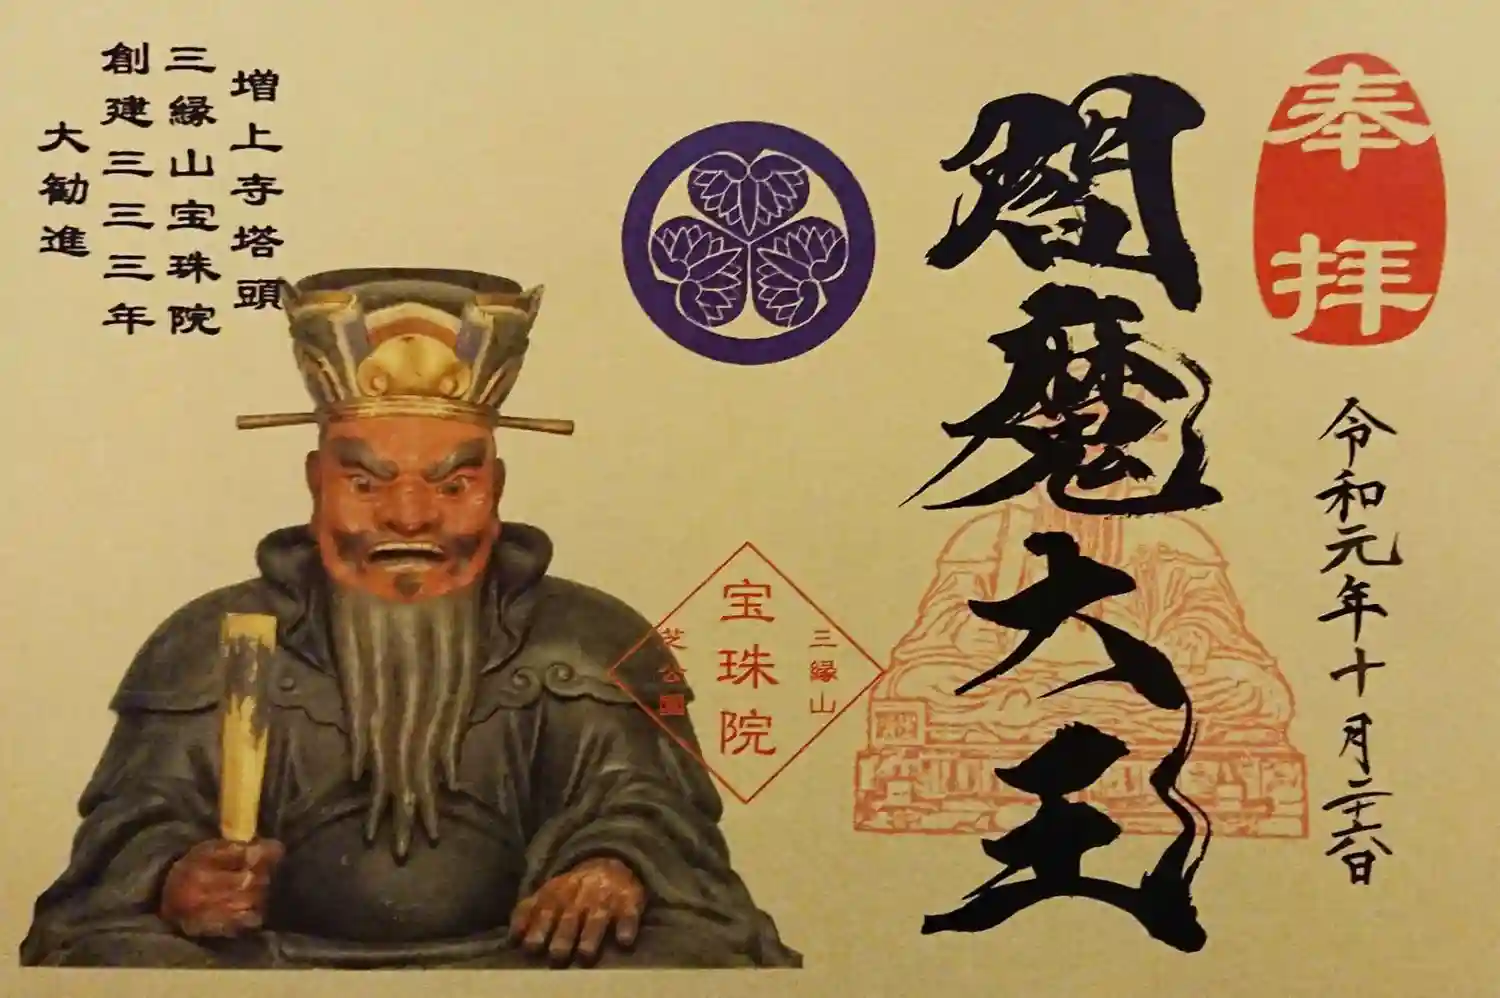 奉拝
令和元年十月二十六日
閻魔大王
三縁山
宝珠院
芝公園
増上寺塔頭
三縁山宝珠院
創建三三三年
大勧進